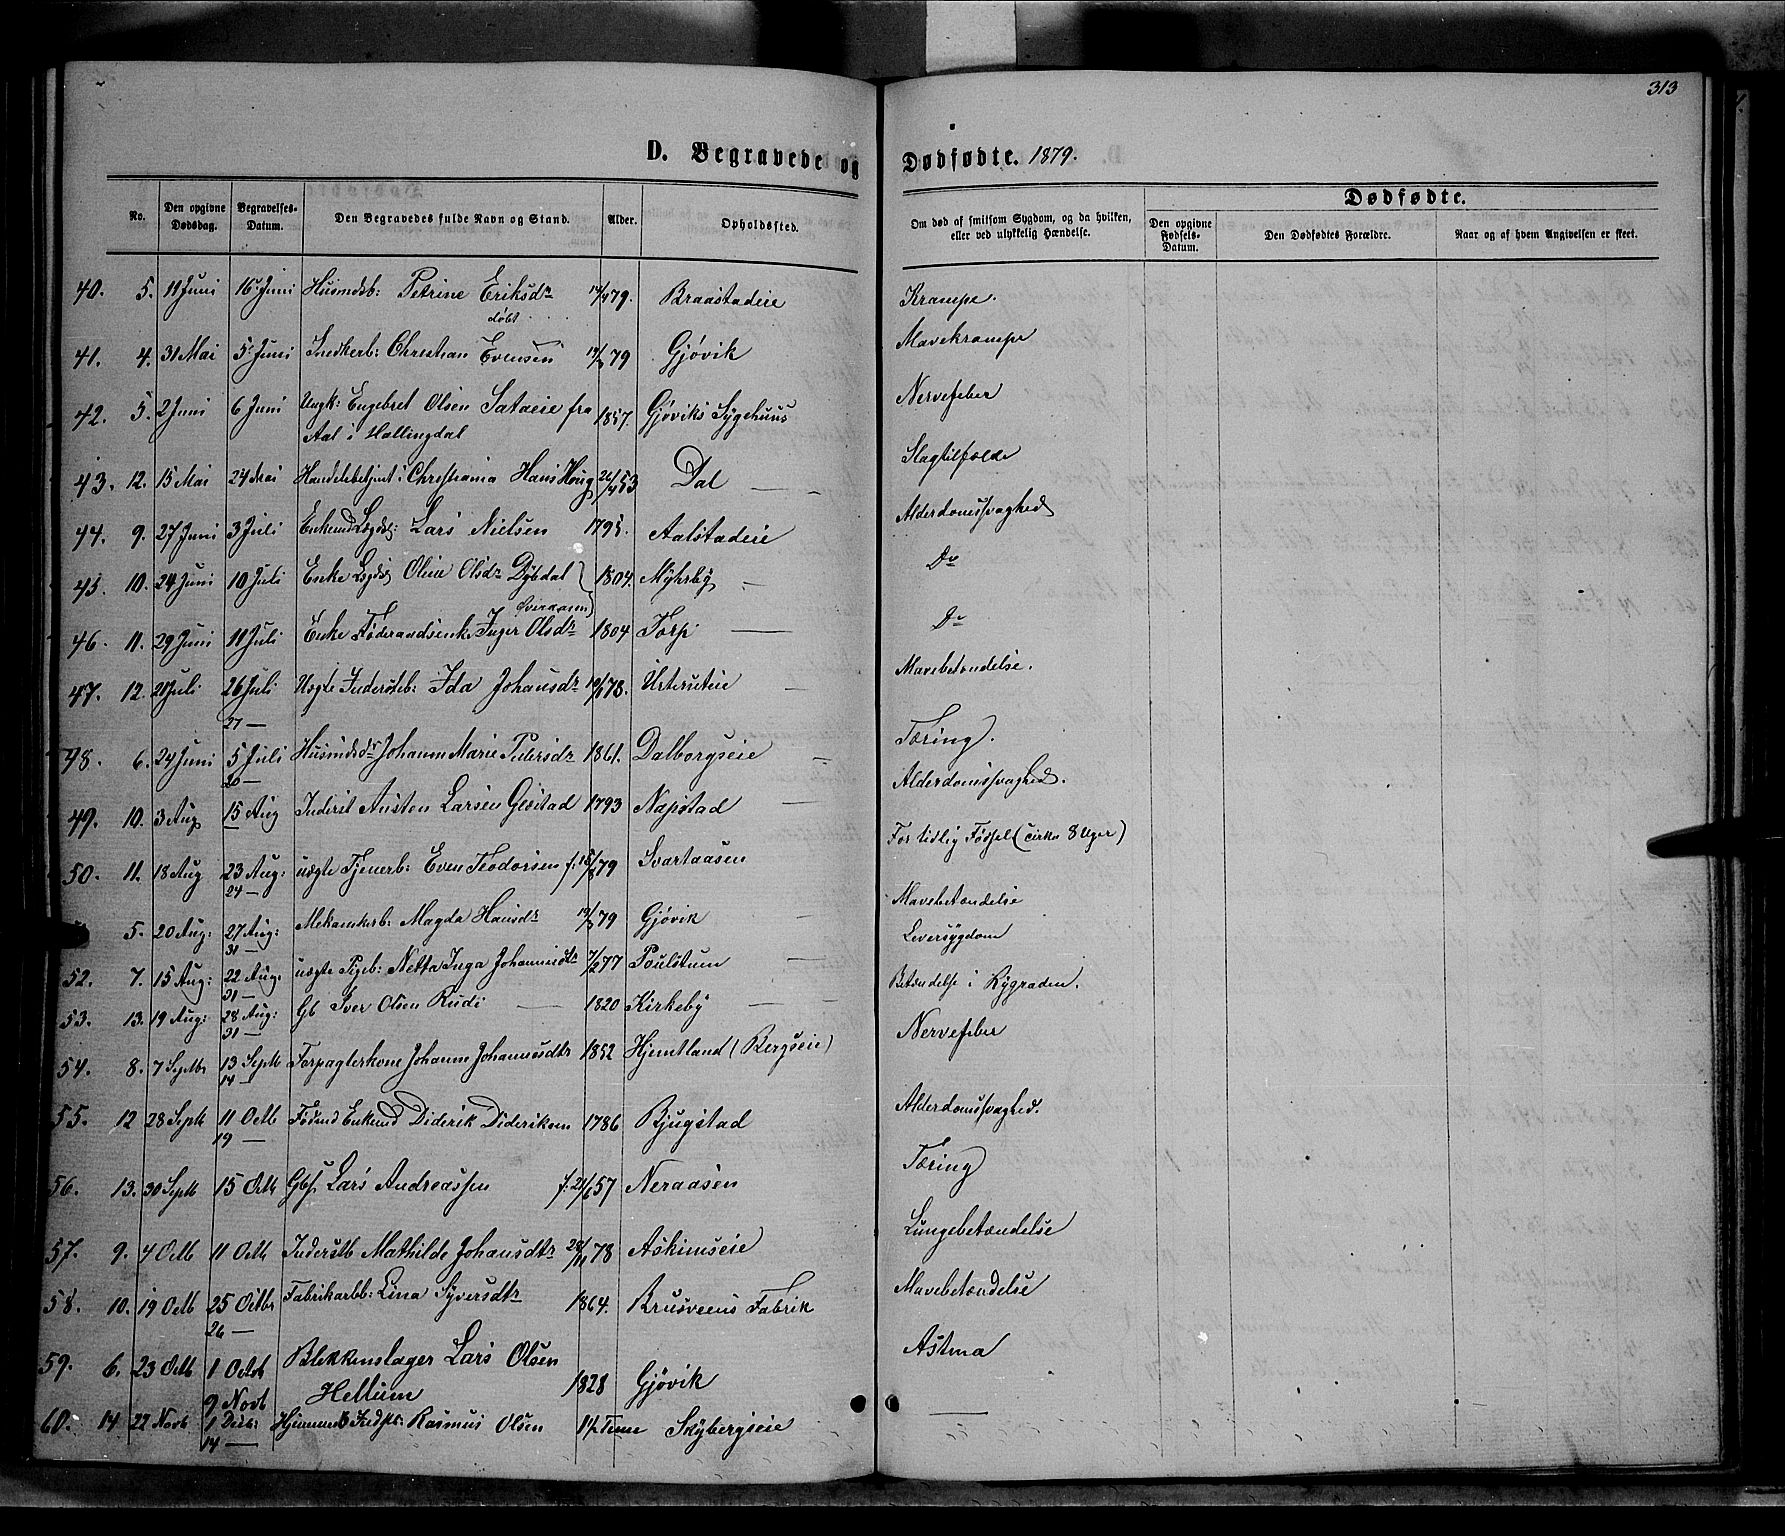 313
D. Begravede og Dødfødte. 1879.
Dødfødte.
No. Den opgivne Dødsdag. Begravelses-Datum. Den Begravedes fulde Navn og Stand. Alder. Opholdssted. Om død af smitsom Sygdom, og da hvilken, eller ved ulykkelig Hændelse. Den opgivne Fødsels-Datum. Den Dødfødtes Forældre. Naar og af hvem Angivelsen er skeet.
40. 5. 11 Juni 16 Juni Husmdsb: Petrine Eriksdr 79. Braastadeie Krampe.
døbt
41. 4. 31 Mai 5 Juni Snedkerb: Christian Evensen 79 Gjøvik Mavekrampe
42. 5. 2 Juni 6 Juni Ungk: Engebret Olsen Sataeie fra 1857. Gjøviks Sygehuus Nervefeber
Aal i Hallingdal
43. 12. 15 Mai 24 Mai Handelsbetjent i Christiania Hans Houg 26/4 53 Dal — Slagtilfælde
44. 9. 27 Juni 3 Juli Enkemd Lægdsl: Lars Nielsen 1795. Aalstadeie Alderdomssvaghed
45. 10. 24 Juni 10 Juli Enke Oline Olsdr Dybdal 1804. Myhrby — Do
46. 11. 29 Juni 11 Juli Enke Føderaadsenke Inger Olsdr 1804 Torp — Do
47. 12. 21 Juli 26 Juli Uægte Inderstb: Ida Johansdr 78. — Mavebetændelse.
27 —
48. 6. 24 Juni 5 Juli Johanne Marie Pedersdr 1861. Dalborgseie — Tæring.
20 —
49. 10. 3 Aug 15 Aug Inderst Austen Larsen Gjøstad 1793 Napstad — Alderdomssvaghed.
50. 11. 18 Aug 23 Aug: uægte Tjenerb: Even Teodorsen f. 79 Svartaasen For tidlig Fødsel (cirka 8 Uger)
24 —
5. 20 Aug: 27 Aug: Mekanikerb: Magda Hansdr 79 Gjøvik — Mavebetændelse
31 —
52. 7. 15 Aug: 22 Aug: uægte Pigeb: Netta Inga Johannesdtr 7/2 77 Poulstum Leversygdom
31 —
53. 13. 19 Aug: 28 Aug: Gb Iver Olsen Rudi — 1820 Kirkeby — Betændelse i Rygraden.
31 —
54. 8. 7 Septbr 13 Septb Forpagterkone Johanne Johannesdtr 1852 Hjemtland (Bergseie) Nervefeber
14 —
55. 12 28 Septb 11 Octb Enkemd Diderik Dideriksen 1786 Bjugstad Alderdomssvaghed.
19 —
56. 13. 30 Septb 15 Octb Gbs. Lars Andreassen f. 21/6 57 Neraasen Tæring
57. 9. 4 Octb 11 Octb Inderstb Mathilde Johansdtr 28/11 78 Askimseie Lungebetændelse
58. 10. 19 Octb 25 Octbr Fabrikarbb: Lina Syversdtr 1864. Brusveens Fabrik Mavebetændelse
26 —
59. 6. 23 Octb 1 Octb Blekkenslager Lars Olsen 1828 Gjøvik Astma
9 Novb Hellum
60. 14 22 Novb 1 Decb: Rasmus Olsen 1½ Time Skybergseie —
14 —